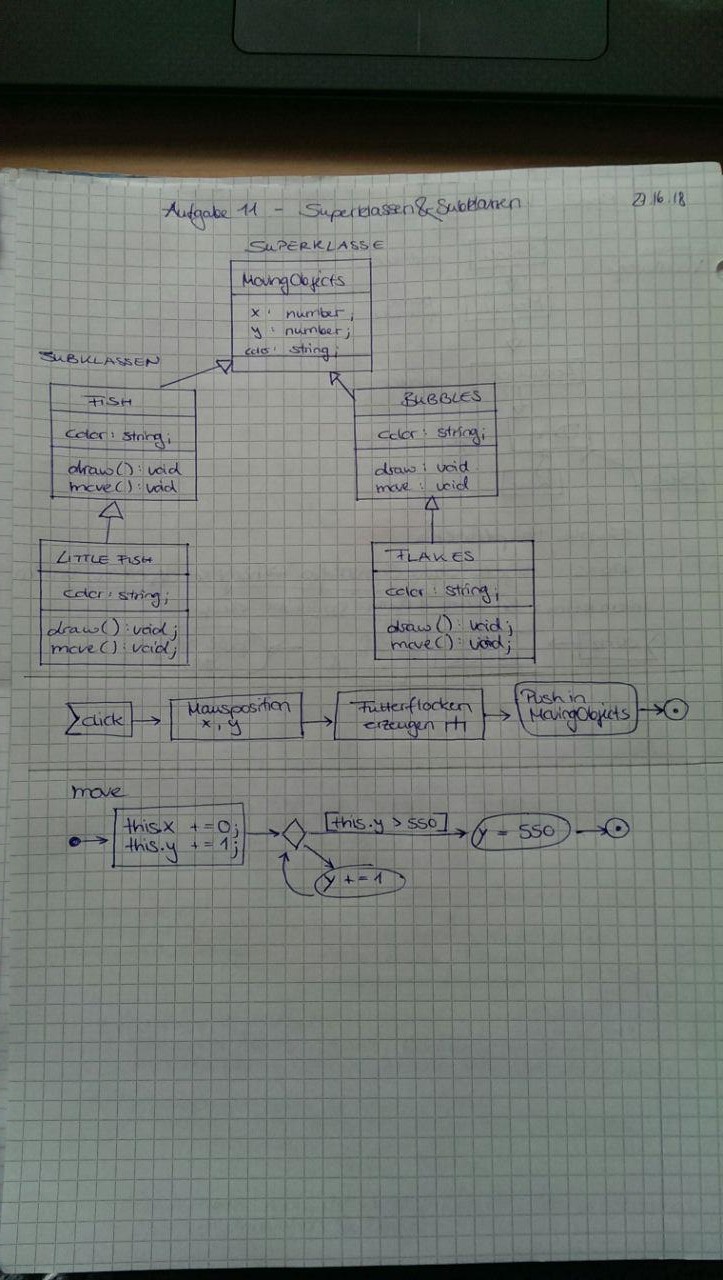 Aufgabe 11 - Superklassen & Subklassen
27.16.18
SUPERKLASSE
MovingObjects
x : number;
y : number;
color : string;
SUBKLASSEN
FISH
color : string;
draw() : void
move() : void
BUBBLES
color : string;
draw : void
move : void
LITTLE FISH
color : string;
draw() : void;
move() : void;
FLAKES
color : string;
draw() : void;
move() : void;
click
Mausposition
x, y
Futterflocken
erzeugen
Push in
MovingObjects
move
this.x += 0;
this.y += 1;
[this.y > 550]
y = 550
y += 1